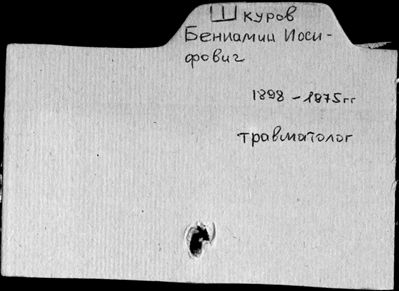 Шкуров
Бениамин Иоси-
фович
1898 - 1875гг
травматолог